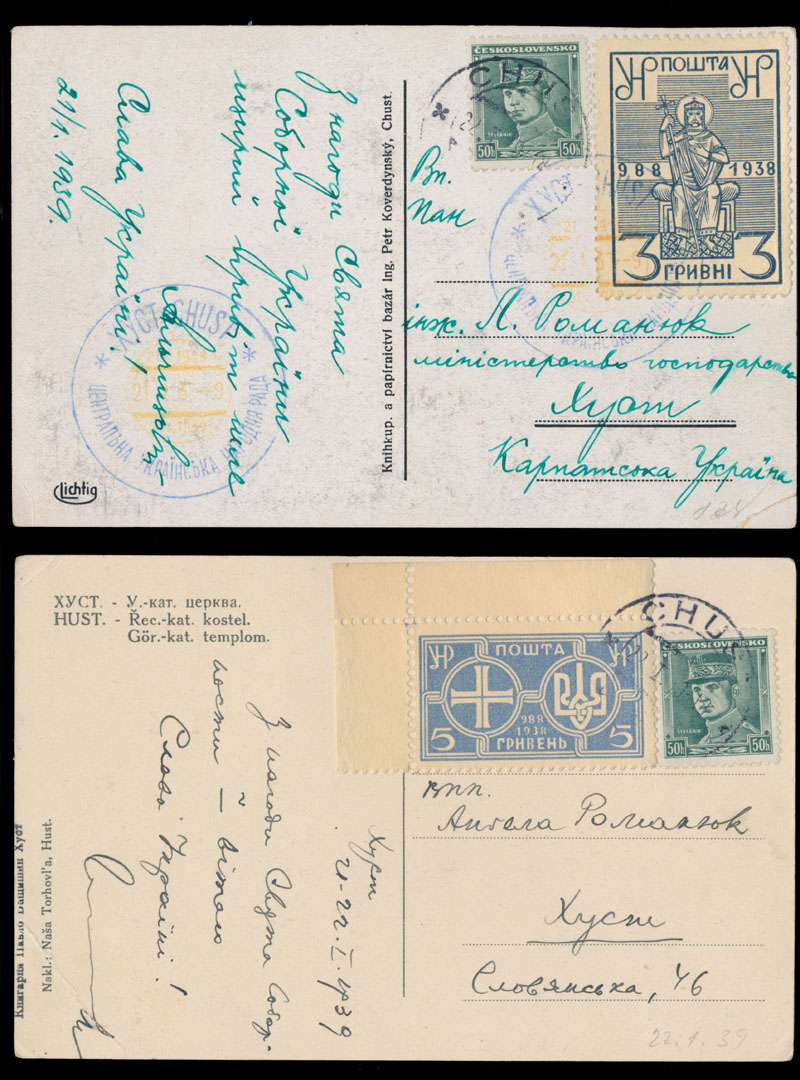 З нагоди Свята
Соборної України
щирий привіт шле
Слава Україні!
21/1. 1939.
Lichtig
ХУСТ-CHUSZ
21
ЦЕНТРАЛЬНА УКРАЇНСЬКА НАРОДНА РАДА
Knihkup. a papírnictví bazár Ing. Petr Koverdynský, Chust.
ČESKOSLOVENSKO
ŠTEFÁNIK
50h 50h
CHUST
УНР ПОШТА УНР
988 1938
3 ГРИВНІ 3
ХУСТ-CHUSZ
Вп.
Пан
інж. Л. Романюк
міністерство господарства
Хуст
Карпатська Україна
ХУСТ. - У.-кат. церква.
HUST. - Řec.-kat. kostel.
Gör.-kat. templom.
УНР ПОШТА УНР
988
1938
5 ГРИВЕНЬ 5
ČESKOSLOVENSKO
ŠTEFÁNIK
50h 50h
CHUST
Хуст
21-22. I. 1939
З нагоди Свята Собор-
ности — вітаю
Слава Україні!
Книгарня Павло Ващишин Хуст
Nakl.: Naša Torhovl'a, Hust.
впп.
Ангела Романюк
Хуст
Словянська, 46
22.1.39